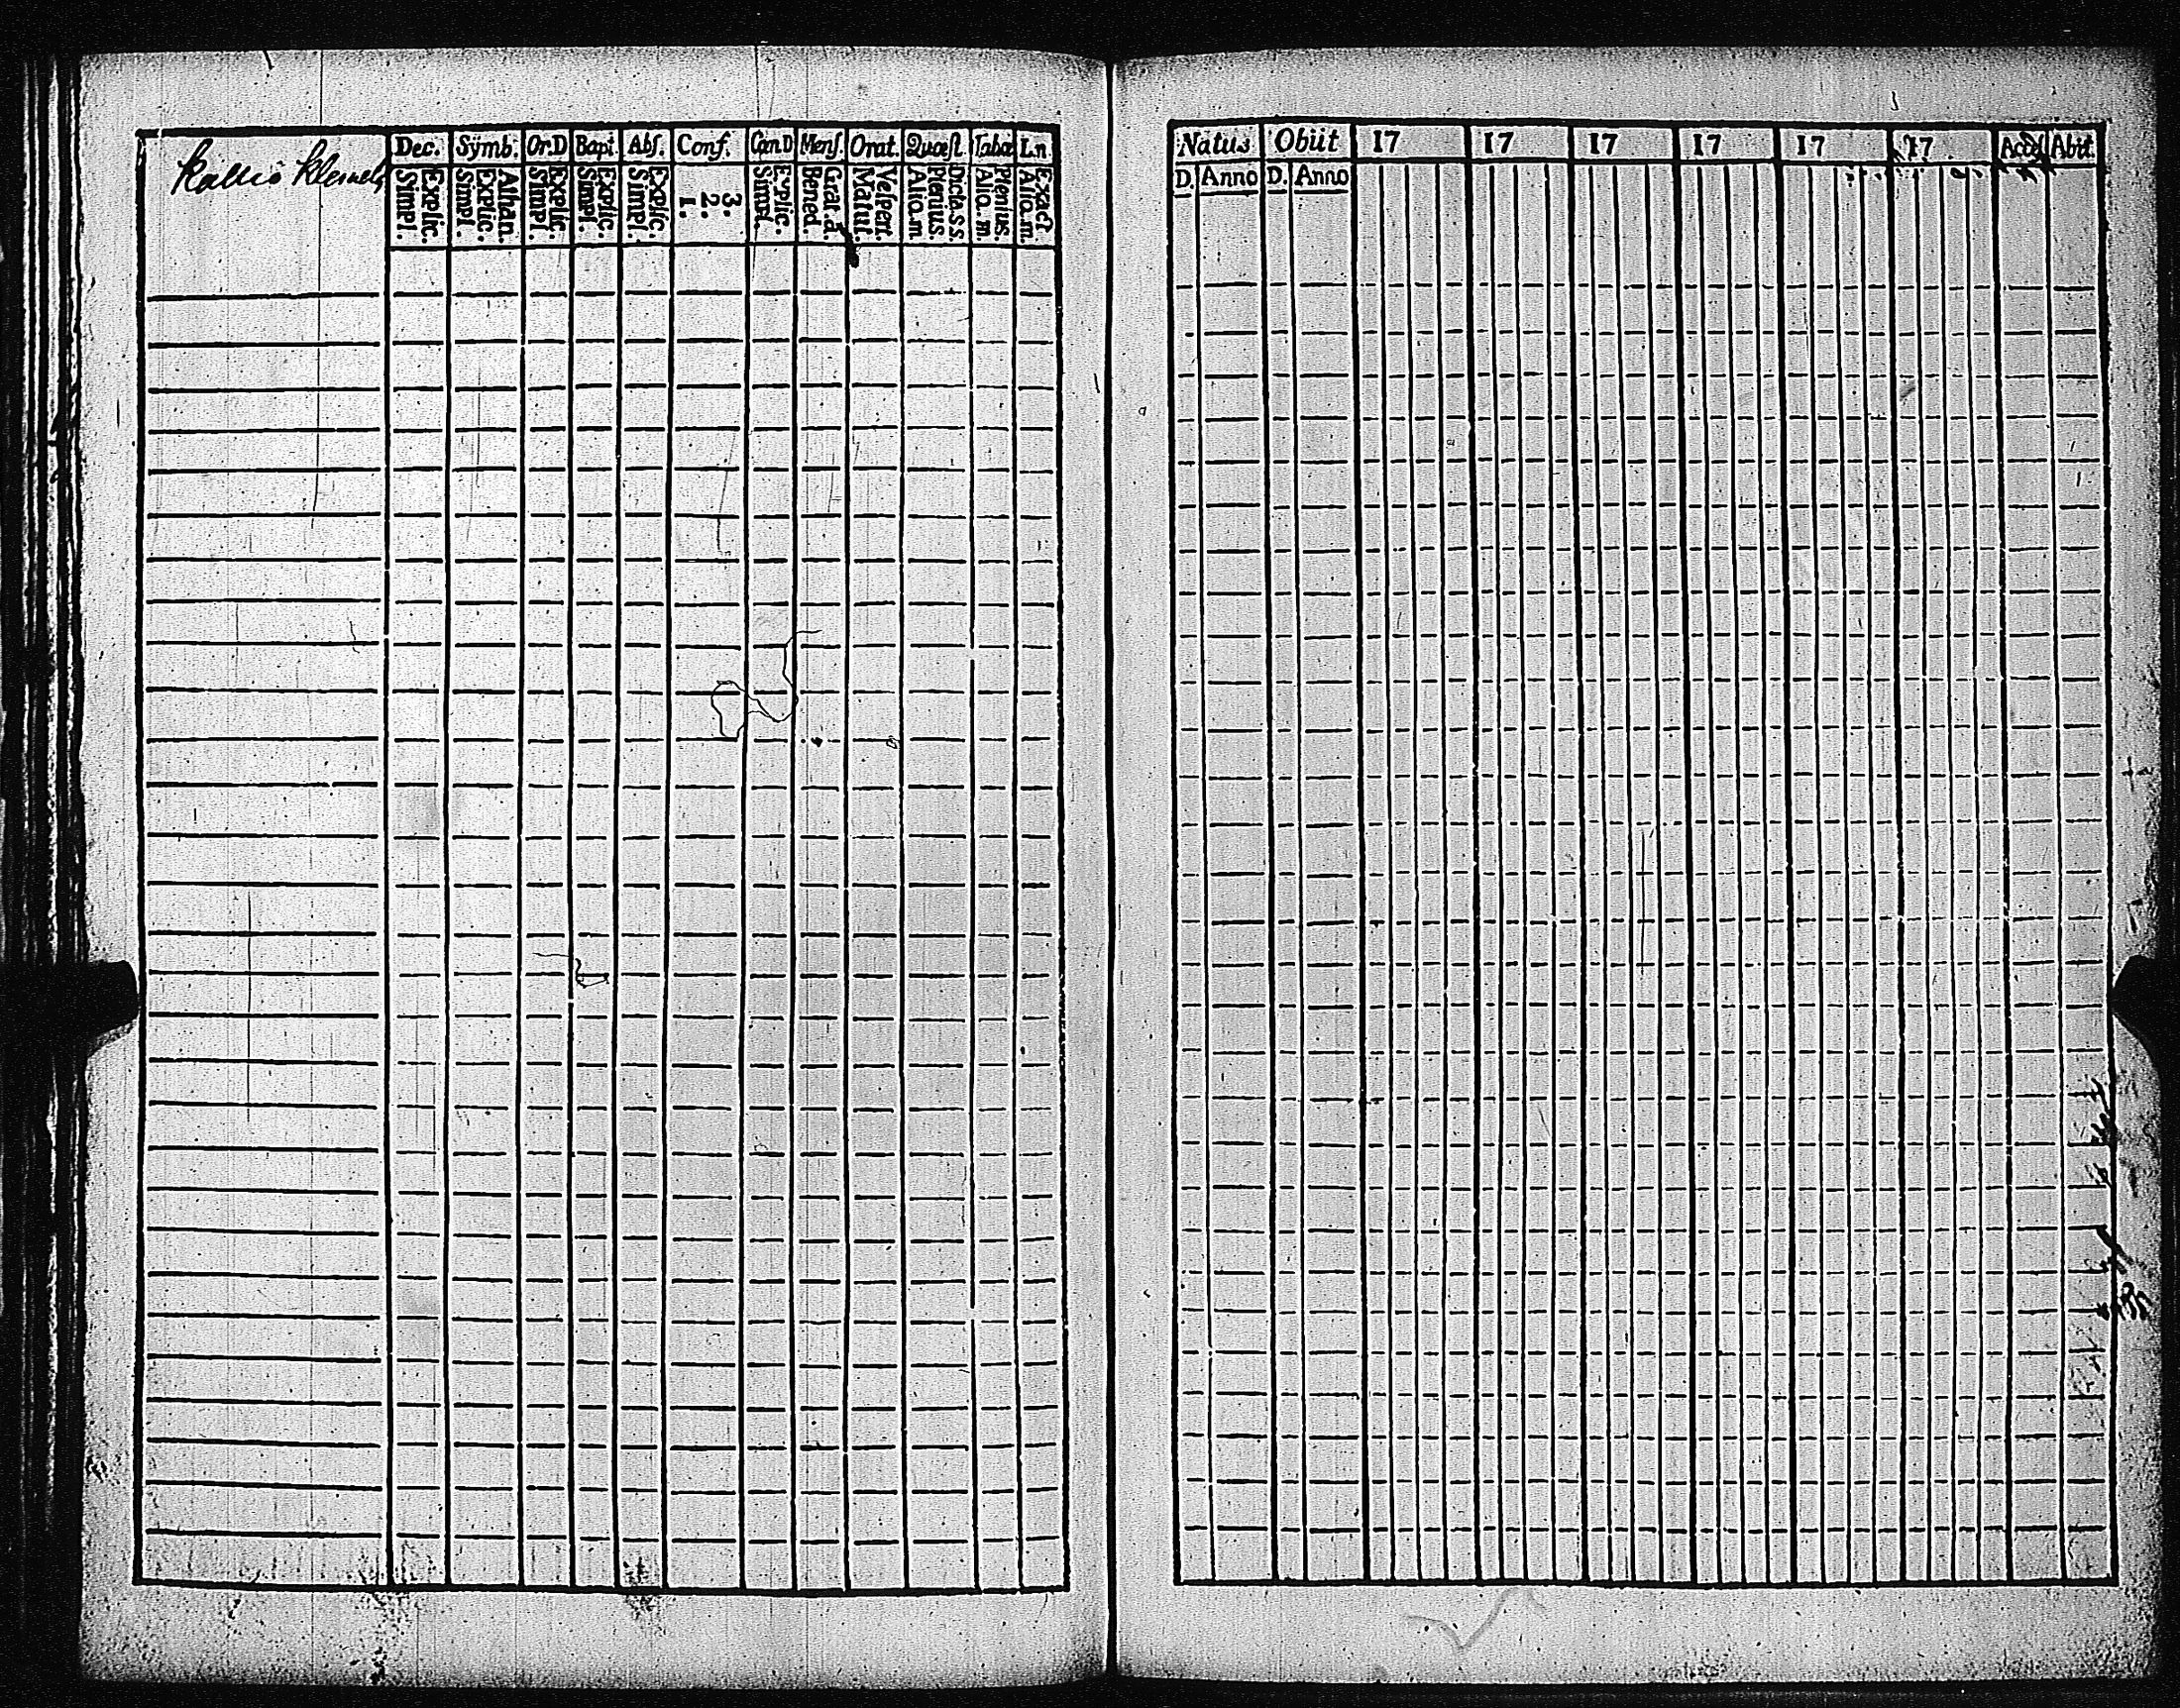 Kallio Klemelä
Dec. Sÿmb. Or.D Bapt. Abs. Conf. Can D Mens. Orat. Quæst. Tabæ Ln.
Explic. Simpl.
Athan. Explic. Simpl.
Explic. Simpl.
Explic. Simpl.
Explic. Simpl.
3. 2. 1.
Explic. Simpl.
Grat. a. Bened.
Vesper. Matut.
Dicta. SS. Plenius. Alio. m
Plenius. Alio. m
Exact Alio. m.
Natus Obiit 17 17 17 17 17 17 Acces Abit
D. Anno D. Anno